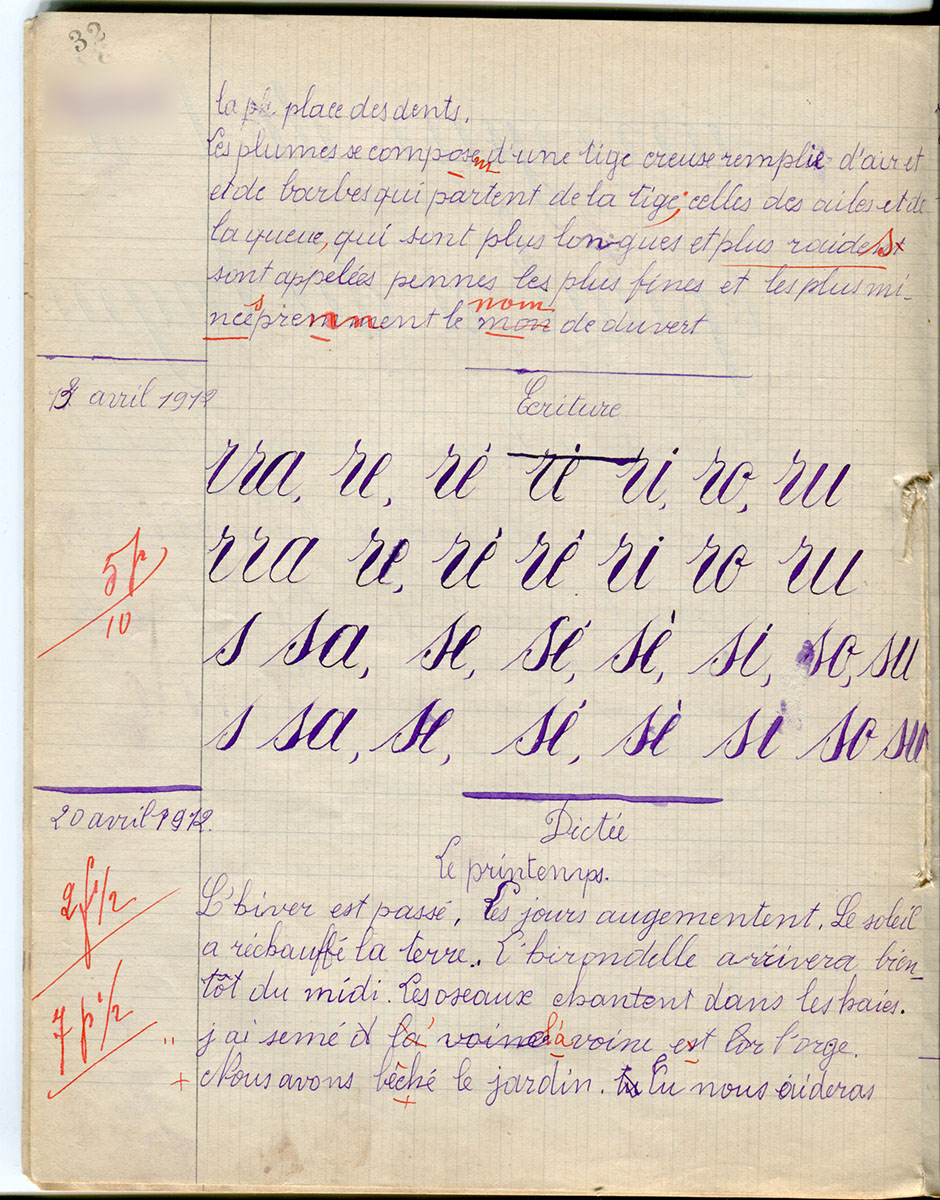 32
la place des dents.
Les plumes se composent d'une tige creuse remplie d'air et
et de barbes qui partent de la tige; celles des ailes et de
la queue, qui sont plus longues et plus raides
sont appelées pennes les plus fines et les plus mi-
nces prennent le mon nom de duvert
13 avril 1912
Ecriture
rra, re, ré rè ri, ro, ru
rra re, ré rè ri ro ru
5p/10
s sa, se, sé, sè, si, so, su
s sa, se, sé, sè si so su
20 avril 1912.
Dictée
Le printemps.
2f 1/2
L'hiver est passé, Les jours augementent. Le soleil
a réchauffé la terre. L'hirondelle arrivera bien-
tôt du midi. Les oseaux chantent dans les haies.
7p 1/2
j'ai semé l'avoine et l'orge.
Nous avons bêché le jardin. Tu nous aideras